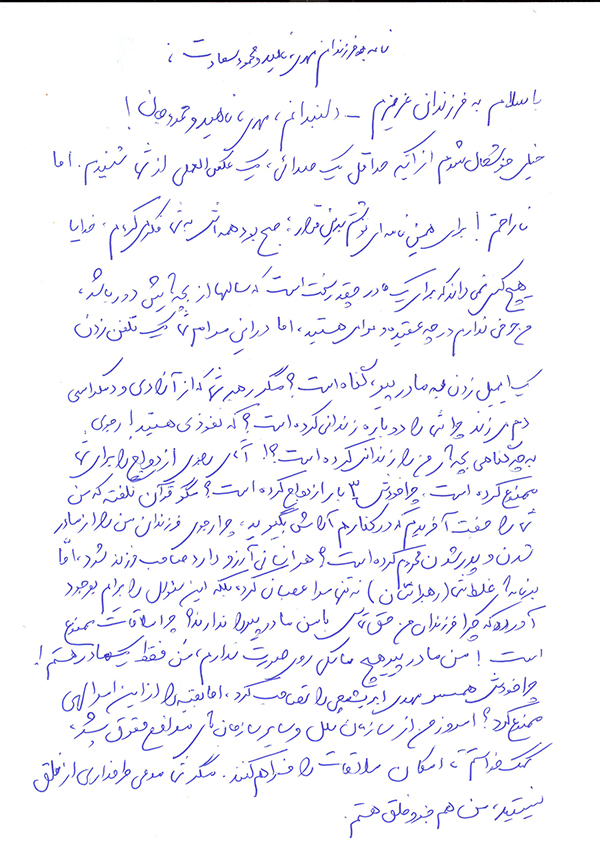 نامه به فرزندانم مهدی، ناهید و محمود سعادت ؛
با سلام به فرزندانی عزیزم – دلبندانم، مهدی، ناهید و محمود جانی !
خیلی خوشحال شدم از آنکه حداقل یک صدائی، یک عکس العملی از شما شنیدم. اما
ناراحتم ! برای همین نامه ای نوشتم بدین قرار؛ صبح بود همه اش به شما فکر می کردم، خدایا
هیچ کس نمی داند که برای یک مادر چقدر سخت است که سالها از بچه هایش دور باشد،
من حرفی ندارم در چه عقیده و مرامی هستید، اما در این مرام شما یک تلفن زدن
یک ایمیل زدن به مادر پیر، گناه است؟ مگر رهبر شما که از آزادی و دمکراسی
دم می زند چرا شما را دوباره زندانی کرده است؟ که نفوذی هستید! رجوی
به چه گناهی بچه های من را زندانی کرده است؟! آقای رجوی ازدواج را برای شما
ممنوع کرده است. چرا خودش ۳ بار ازدواج کرده است؟ مگر قرآن نگفته که من
شما را جفت آفریدم که در کنار هم آرامش بگیرید، چرا رجوی فرزندان من را از مادر
شدن و پدر شدن محروم کرده است؟ هر انسانی آرزو دارد صاحب فرزند شود، امّا
برنامه های غلط شما (رهبرانتان) نه تنها مرا عصبان کرده بلکه این سئوال را برایم بوجود
آورده که چرا فرزندان من حق تماس با من مادر پیر را ندارند؟ چرا ملاقات ممنوع
است ! من مادر پیر هیچ مشکلی رو صورت ندارم، من فقط یک مادر هستم !
چرا خودش همسر مهدی ابریشمچی را تصاحب کرد، اما بقیه را از این امر الهی
ممنوع کرد؟ امروز من از سازمان ملل و سایر سازمان های مدافع حقوق بشر،
کمک خواستم تا امکان ملاقات را فراهم کنند. مگر شما مدعی طرفداری از خلق
نیستید، من هم جزو خلق هستم.